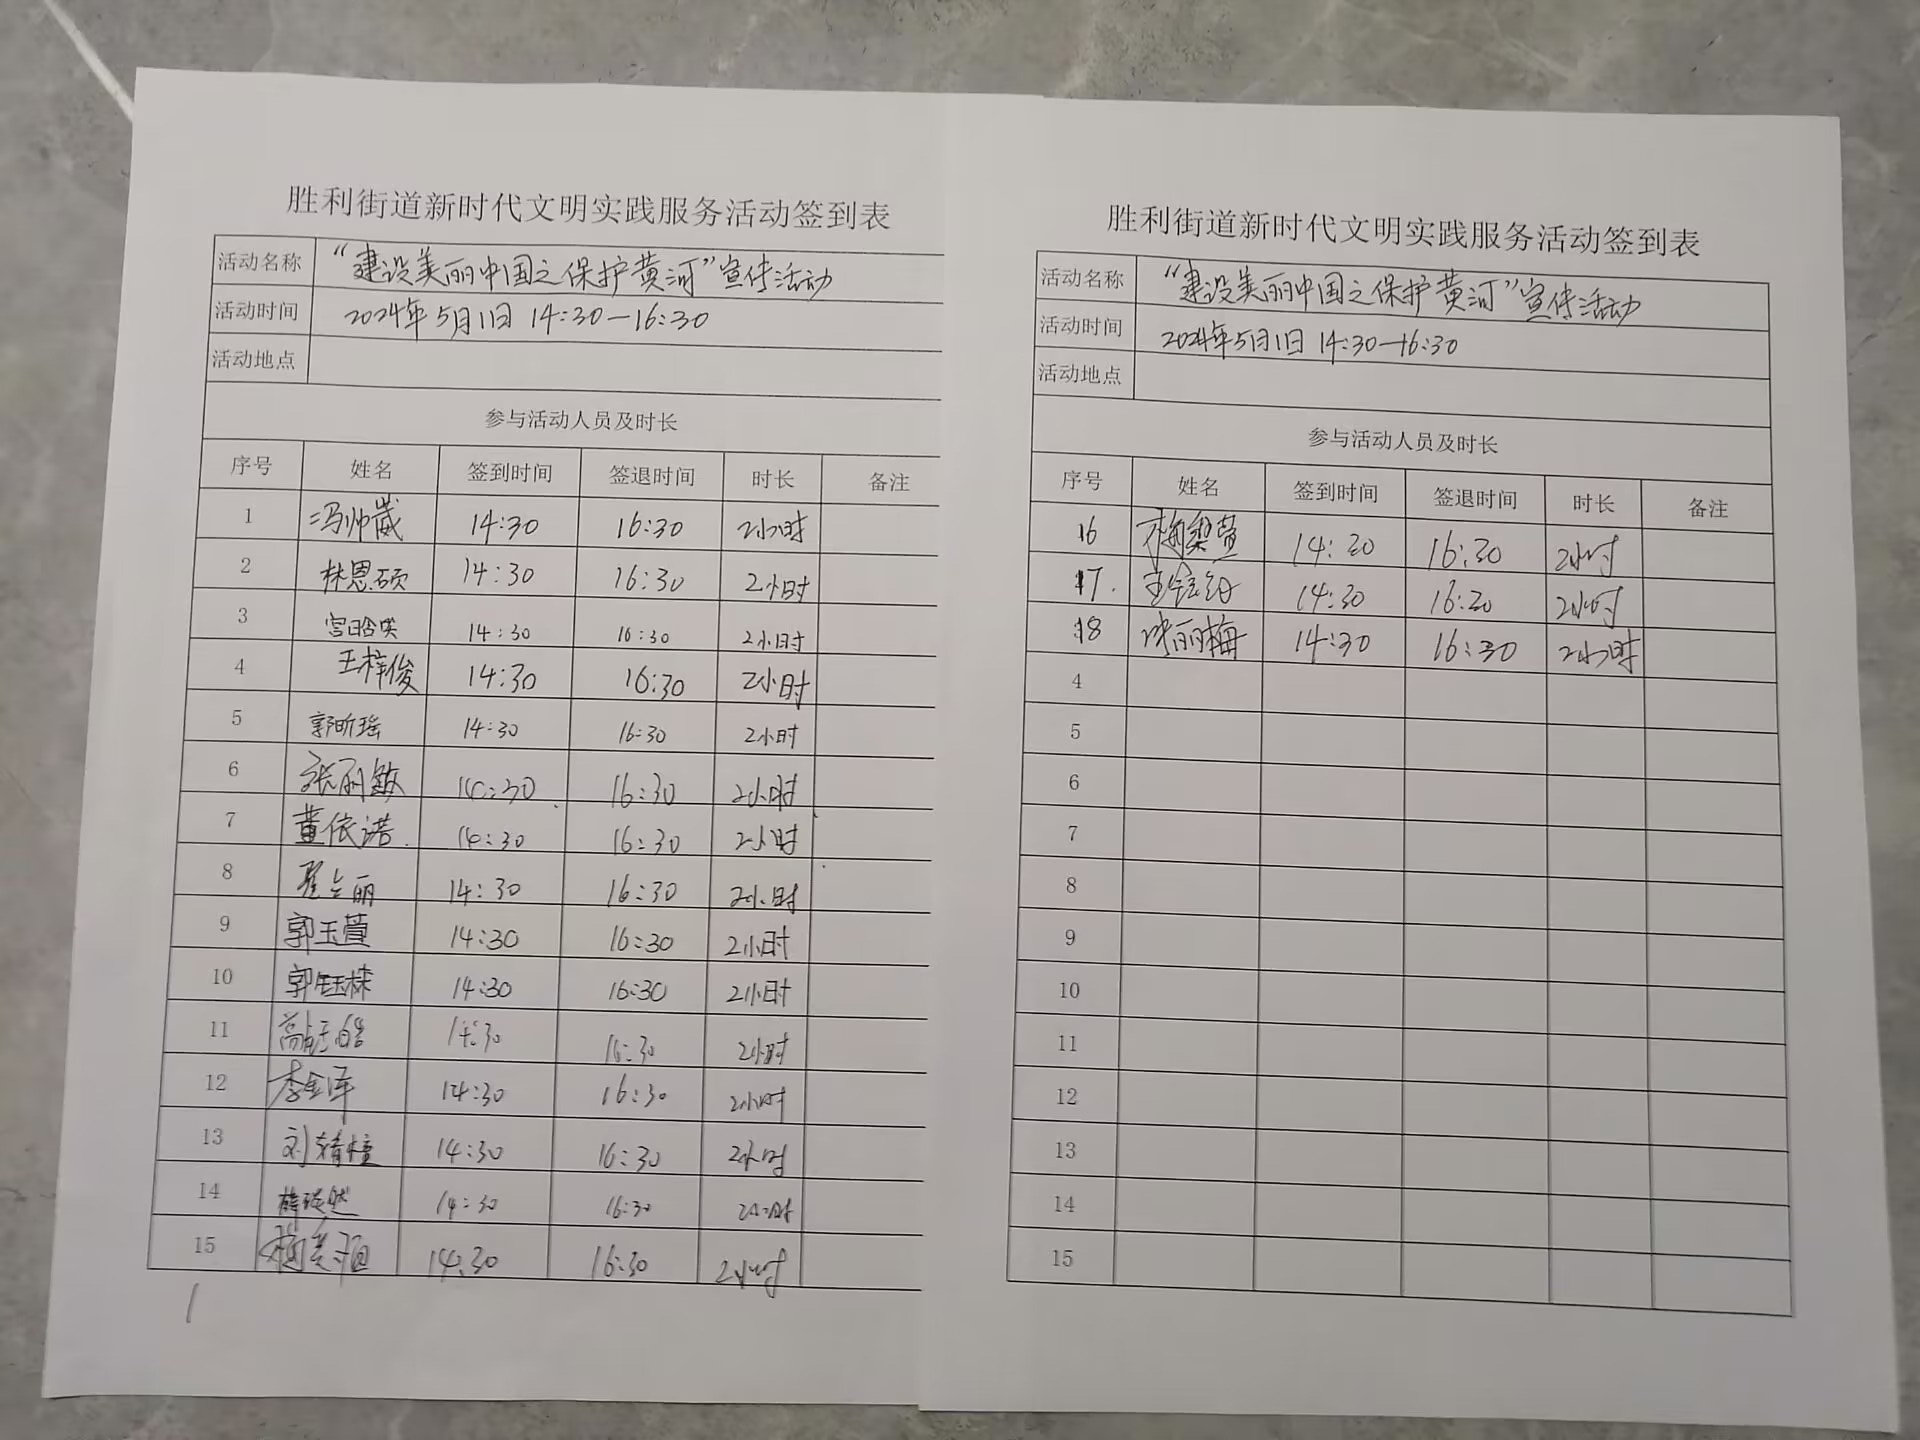 胜利街道新时代文明实践服务活动签到表
活动名称 “建设美丽中国之保护黄河”宣传活动
活动时间 2024年5月11日 14:30—16:30
活动地点
参与活动人员及时长
序号 姓名 签到时间 签退时间 时长 备注
1 冯帅崴 14:30 16:30 2小时
2 林恩硕 14:30 16:30 2小时
3 宫晗 14:30 16:30 2小时
4 王梓俊 14:30 16:30 2小时
5 郭昕瑶 14:30 16:30 2小时
6 张丽敏 14:30 16:30 2小时
7 董依诺 14:30 16:30 2小时
8 丽 14:30 16:30 2小时
9 郭玉萱 14:30 16:30 2小时
10 郭钰栋 14:30 16:30 2小时
11 高皓 14:30 16:30 2小时
12 李金泽 14:30 16:30 2小时
13 刘 14:30 16:30 2小时
14 然 14:30 16:30 2小时
15 14:30 16:30 2小时
胜利街道新时代文明实践服务活动签到表
活动名称 “建设美丽中国之保护黄河”宣传活动
活动时间 2024年5月11日 14:30—16:30
活动地点
参与活动人员及时长
序号 姓名 签到时间 签退时间 时长 备注
16 梅梨萱 14:30 16:30 2小时
17. 14:30 16:30 2小时
18 张丽梅 14:30 16:30 2小时
4
5
6
7
8
9
10
11
12
13
14
15